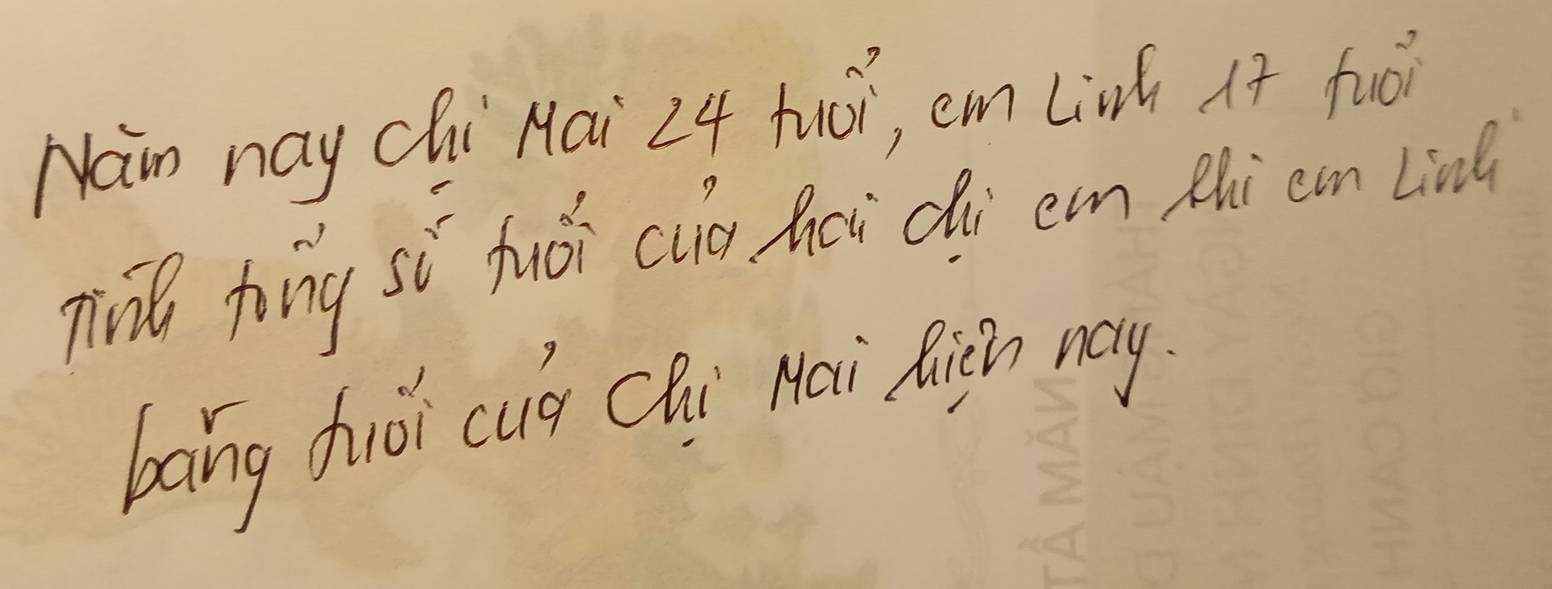 Năm nay chị Mai 24 tuổi, em Linh 17 tuổi
Tính tổng số tuổi của hai chị em khi em Linh
bằng tuổi của Chị Mai hiện nay.
TẦM MĂN